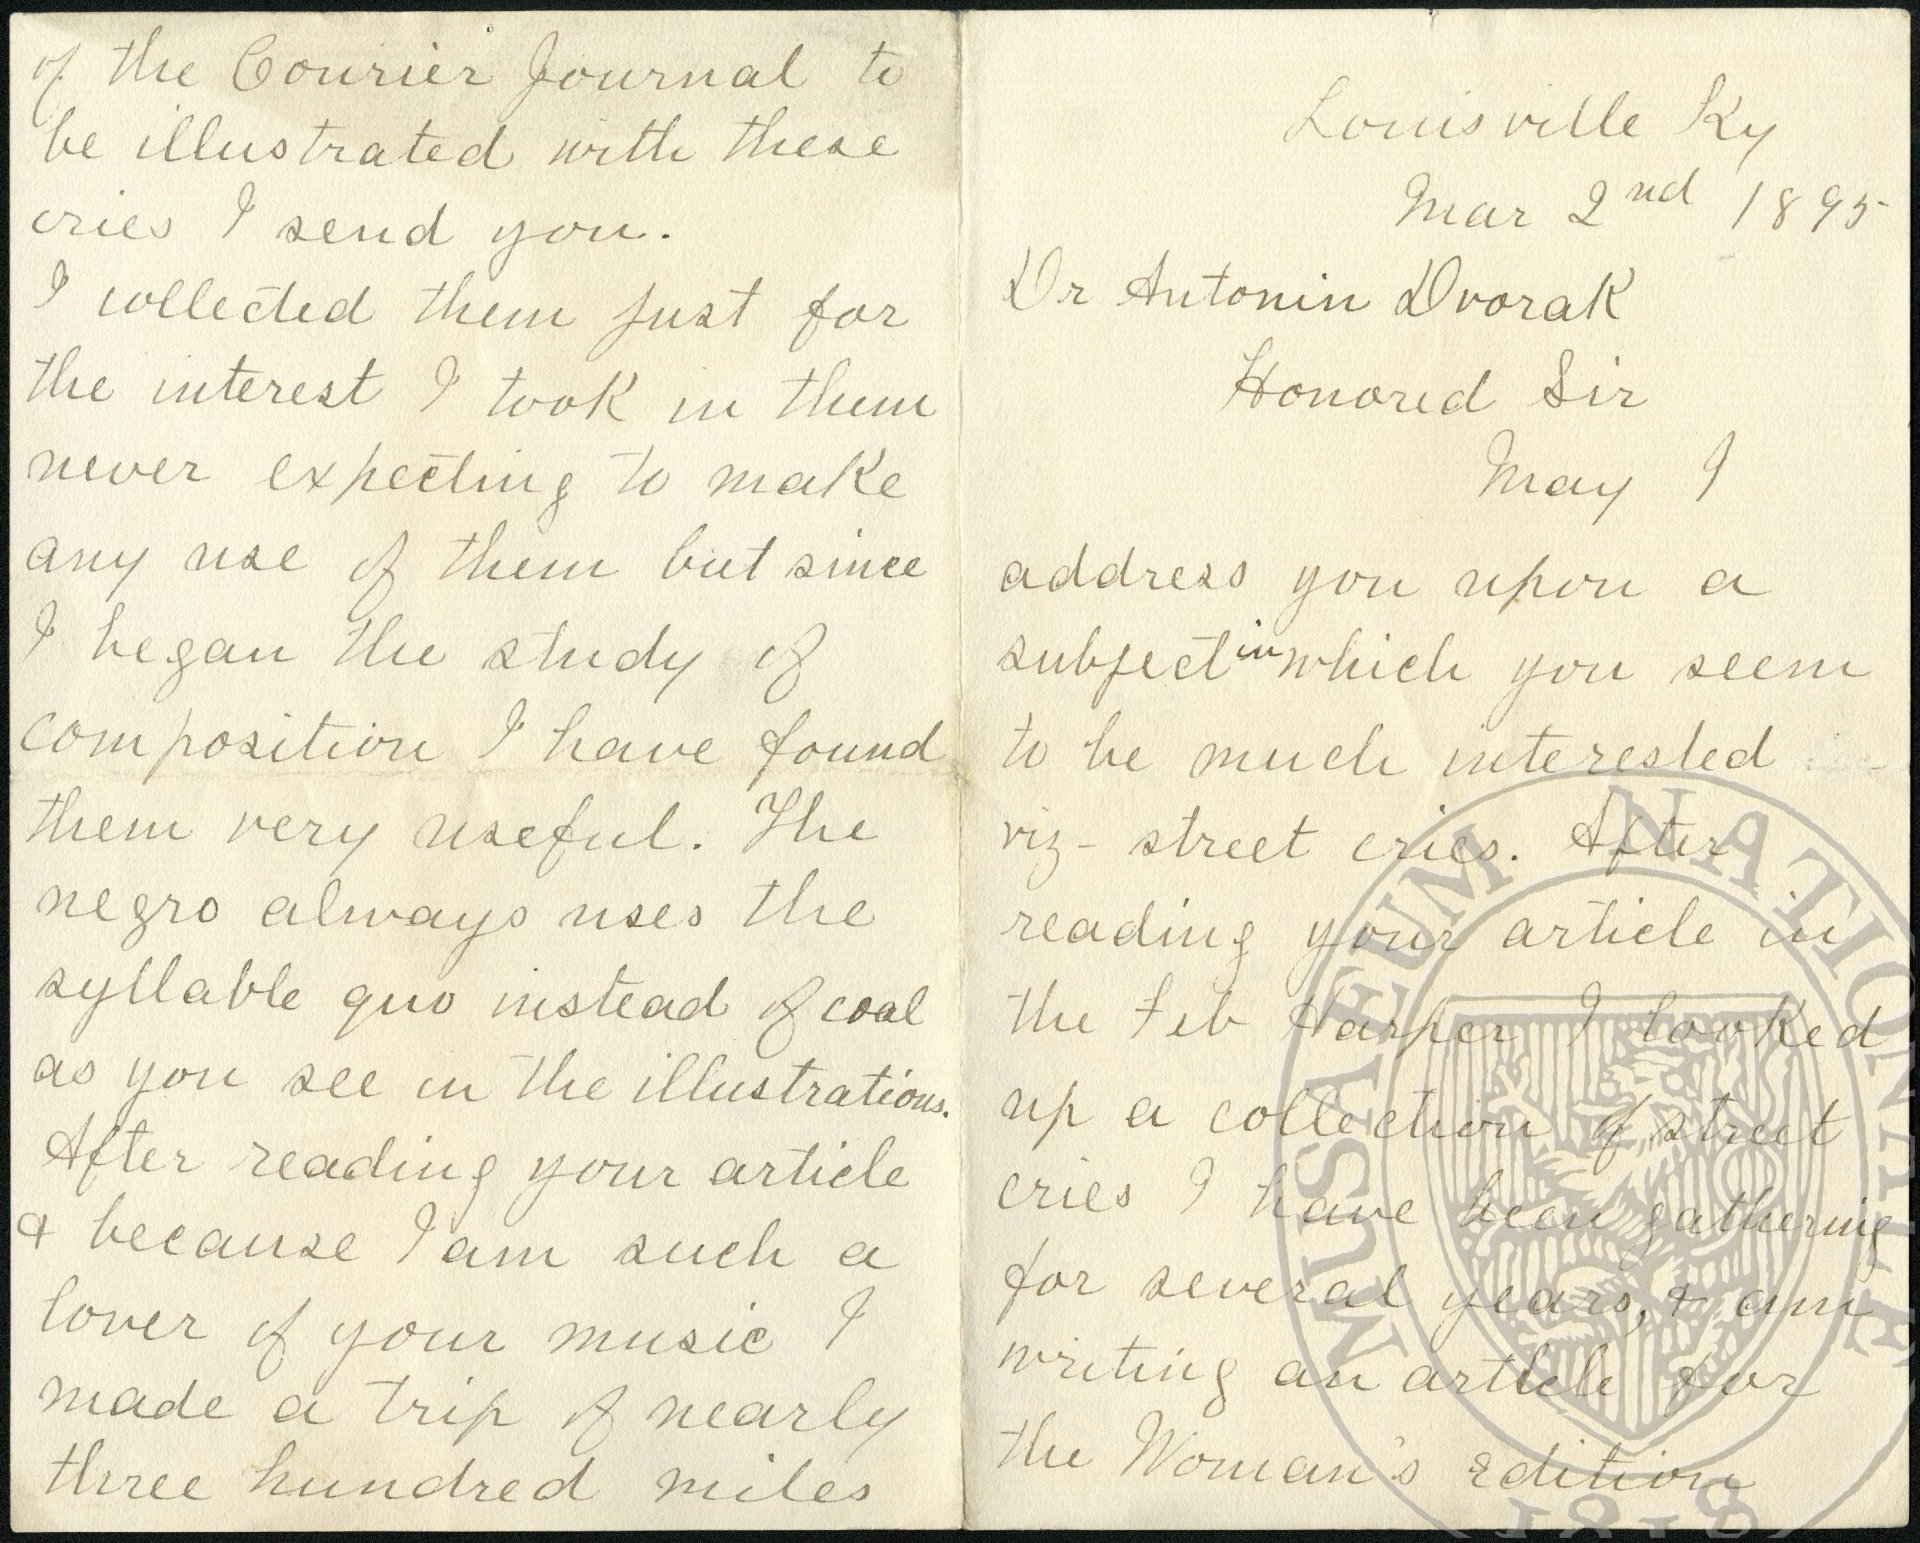 Louisville Ky
Mar 2nd 1895
Dr Antonin Dvorak
Honored Sir
May I
address you upon a
subject in which you seem
to be much interested
viz - street cries. After
reading your article in
the Feb Harper I looked
up a collection of street
cries I have been gathering
for several years, & am
writing an article for
the Woman's Edition
of the Courier Journal to
be illustrated with these
cries I send you.
I collected them just for
the interest I took in them
never expecting to make
any use of them but since
I began the study of
composition I have found
them very useful. The
negro always uses the
syllable quo instead of coal
as you see in the illustrations.
After reading your article
& because I am such a
lover of your music I
made a trip of nearly
three hundred miles
MUSAEUM NATIONALE
1818